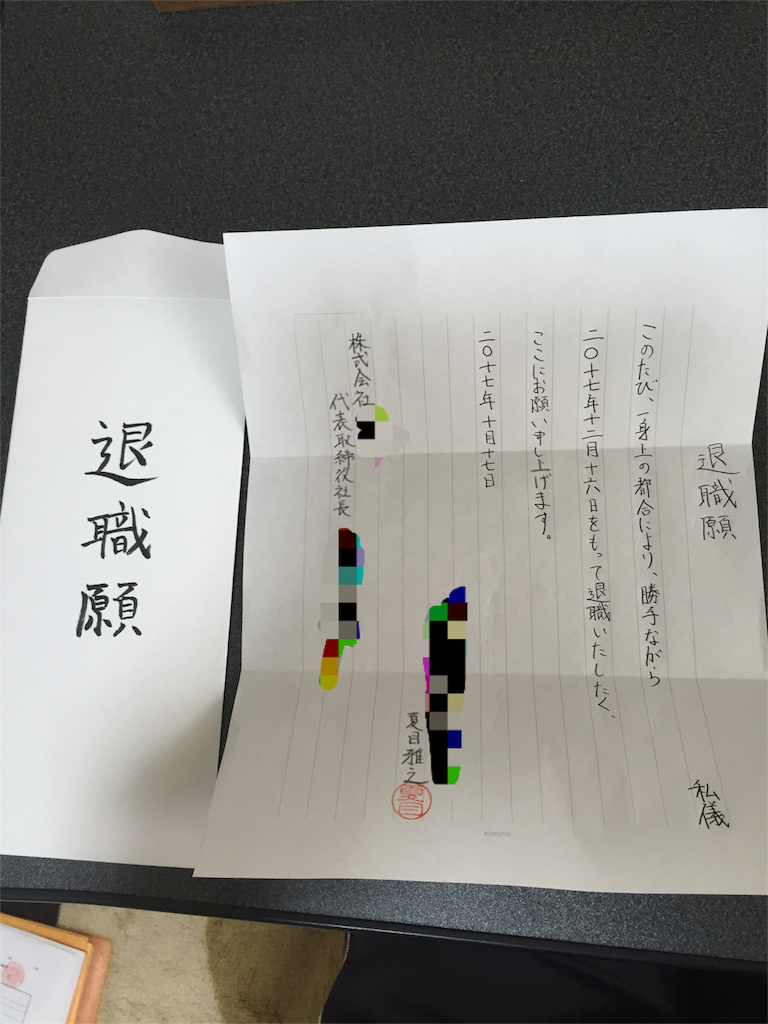 退職願
退職願
私儀
このたび、一身上の都合により、勝手ながら
二〇十七年十二月十六日をもって退職いたしたく、
ここにお願い申し上げます。
二〇十七年 十月十七日
夏目雅之
夏目
株式会社
代表取締役社長
KOKUYO